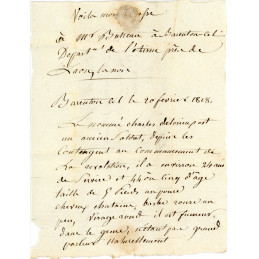 Voila mon
à Mr Busseau à Barenton cel
Depart. de l'aisne près de
Laon,
Barenton cel le 20 fevrier 1818.
Le nommé charles delorme est
un ancien soldat, depuis les
contingent au commancement de
La revolution, il a environ 24 ans
de service et 44 ou cinq d'age
taille de 5 pieds un pouce
cheveux chataine, barbe rousse un
peu, visage rond il est fumeur,
dans le genre, n'étant pas grand
parleur naturellement